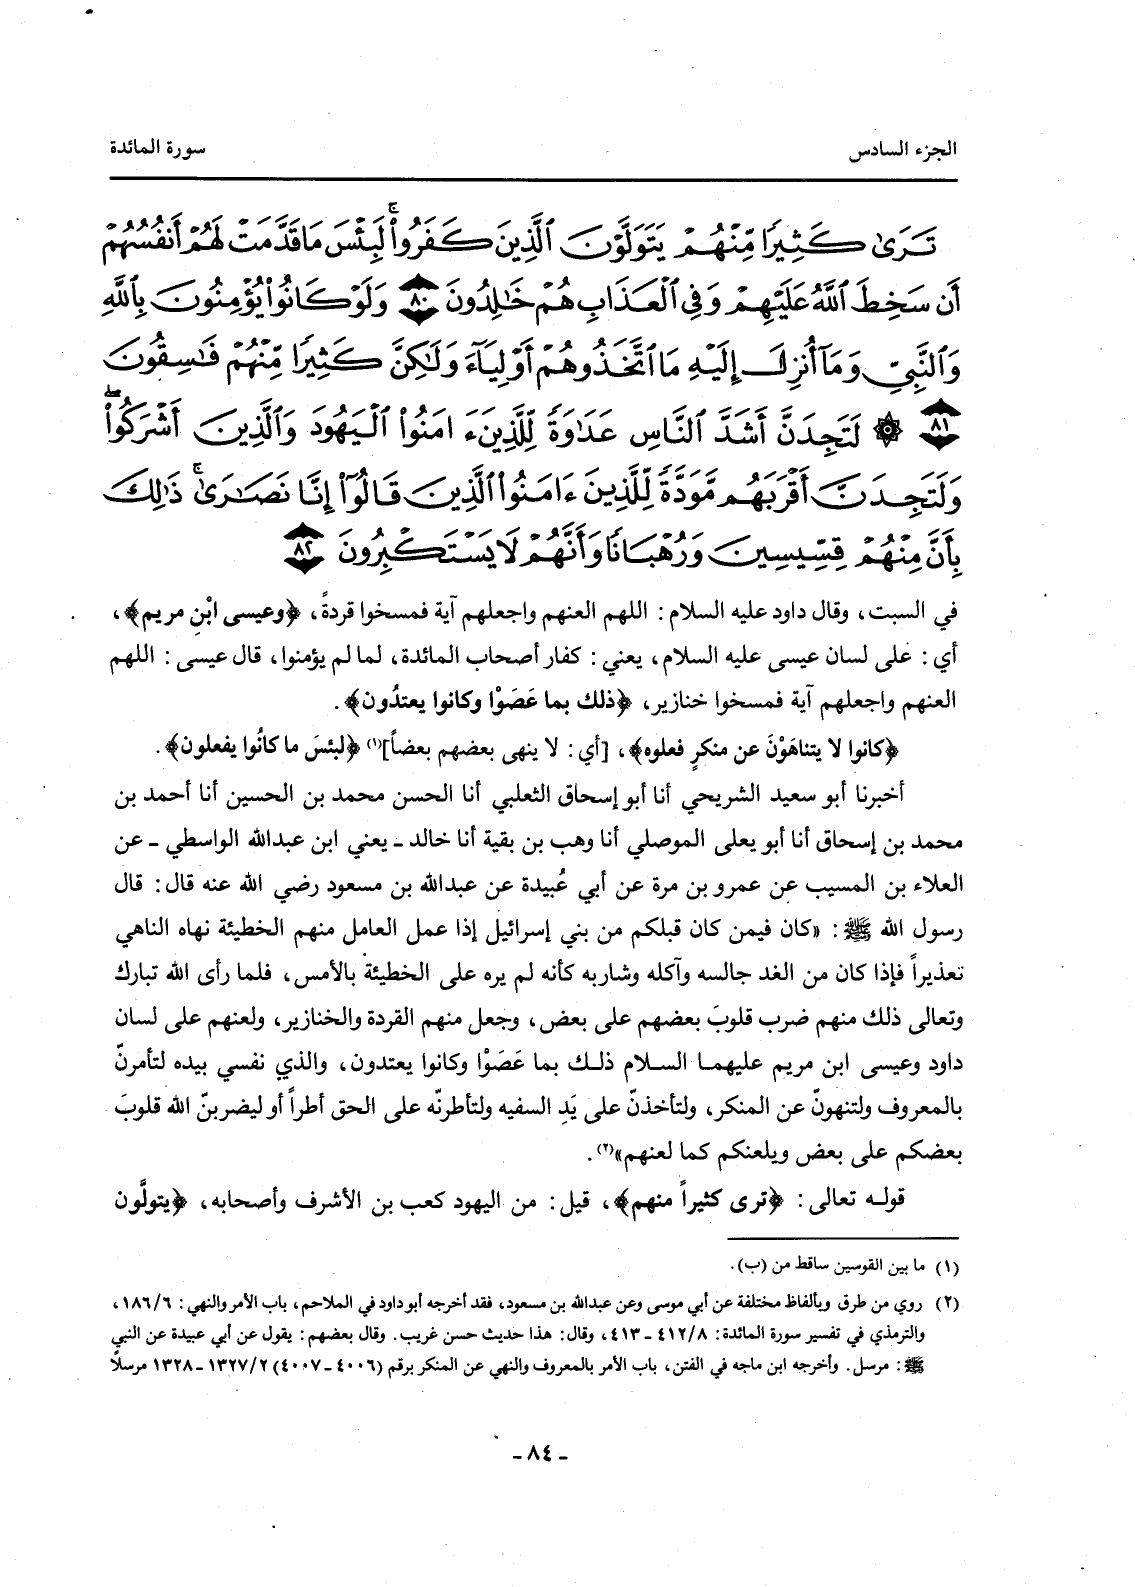 الجزء السادس
سورة المائدة
تَرَىٰ كَثِيرًا مِّنْهُمْ يَتَوَلَّوْنَ ٱلَّذِينَ كَفَرُوا۟ ۚ لَبِئْسَ مَا قَدَّمَتْ لَهُمْ أَنفُسُهُمْ
أَن سَخِطَ ٱللَّهُ عَلَيْهِمْ وَفِى ٱلْعَذَابِ هُمْ خَٰلِدُونَ ٨٠ وَلَوْ كَانُوا۟ يُؤْمِنُونَ بِٱللَّهِ
وَٱلنَّبِىِّ وَمَآ أُنزِلَ إِلَيْهِ مَا ٱتَّخَذُوهُمْ أَوْلِيَآءَ وَلَٰكِنَّ كَثِيرًا مِّنْهُمْ فَٰسِقُونَ
٨١ ۞ لَتَجِدَنَّ أَشَدَّ ٱلنَّاسِ عَدَٰوَةً لِّلَّذِينَ ءَامَنُوا۟ ٱلْيَهُودَ وَٱلَّذِينَ أَشْرَكُوا۟ ۖ
وَلَتَجِدَنَّ أَقْرَبَهُم مَّوَدَّةً لِّلَّذِينَ ءَامَنُوا۟ ٱلَّذِينَ قَالُوٓا۟ إِنَّا نَصَٰرَىٰ ۚ ذَٰلِكَ
بِأَنَّ مِنْهُمْ قِسِّيسِينَ وَرُهْبَانًا وَأَنَّهُمْ لَا يَسْتَكْبِرُونَ ٨٢
في السبت، وقال داود عليه السلام: اللهم العنهم واجعلهم آية فمسخوا قردةً، ﴿وعيسى ابْنِ مريم﴾،
أي: على لسان عيسى عليه السلام، يعني: كفار أصحاب المائدة، لما لم يؤمنوا، قال عيسى: اللهم
العنهم واجعلهم آية فمسخوا خنازير، ﴿ذلك بما عَصَوْا وكانوا يعتدُون﴾.
﴿كانوا لا يتناهَوْنَ عن منكرٍ فعلوه﴾، [أي: لا ينهى بعضهم بعضاً](١) ﴿لبئسَ ما كانُوا يفعلون﴾.
أخبرنا أبو سعيد الشريحي أنا أبو إسحاق الثعلبي أنا الحسن محمد بن الحسين أنا أحمد بن
محمد بن إسحاق أنا أبو يعلى الموصلي أنا وهب بن بقية أنا خالد ـ يعني ابن عبدالله الواسطي ـ عن
العلاء بن المسيب عن عمرو بن مرة عن أبي عُبيدة عن عبدالله بن مسعود رضي الله عنه قال: قال
رسول الله ﷺ: «كان فيمن كان قبلكم من بني إسرائيل إذا عمل العامل منهم الخطيئة نهاه الناهي
تعذيراً فإذا كان من الغد جالسه وآكله وشاربه كأنه لم يره على الخطيئة بالأمس، فلما رأى الله تبارك
وتعالى ذلك منهم ضرب قلوبَ بعضهم على بعض، وجعل منهم القردة والخنازير، ولعنهم على لسان
داود وعيسى ابن مريم عليهما السلام ذلك بما عَصَوْا وكانوا يعتدون، والذي نفسي بيده لتأمرنّ
بالمعروف ولتنهونّ عن المنكر، ولتأخذنّ على يَدِ السفيه ولتأطرنّه على الحق أطراً أو ليضربنّ الله قلوبَ
بعضكم على بعض ويلعنكم كما لعنهم»(٢).
قوله تعالى: ﴿ترى كثيراً منهم﴾، قيل: من اليهود كعب بن الأشرف وأصحابه، ﴿يتولَّون
(١) ما بين القوسين ساقط من (ب).
(٢) روي من طرق وبألفاظ مختلفة عن أبي موسى وعن عبدالله بن مسعود، فقد أخرجه أبو داود في الملاحم، باب الأمر والنهي: ١٨٦/٦،
والترمذي في تفسير سورة المائدة: ٤١٢/٨ ـ ٤١٣، وقال: هذا حديث حسن غريب. وقال بعضهم: يقول عن أبي عبيدة عن النبي
ﷺ: مرسل. وأخرجه ابن ماجه في الفتن، باب الأمر بالمعروف والنهي عن المنكر برقم (٤٠٠٦ ـ ٤٠٠٧) ١٣٢٧/٢ ـ ١٣٢٨ مرسلًا
ـ ٨٤ ـ